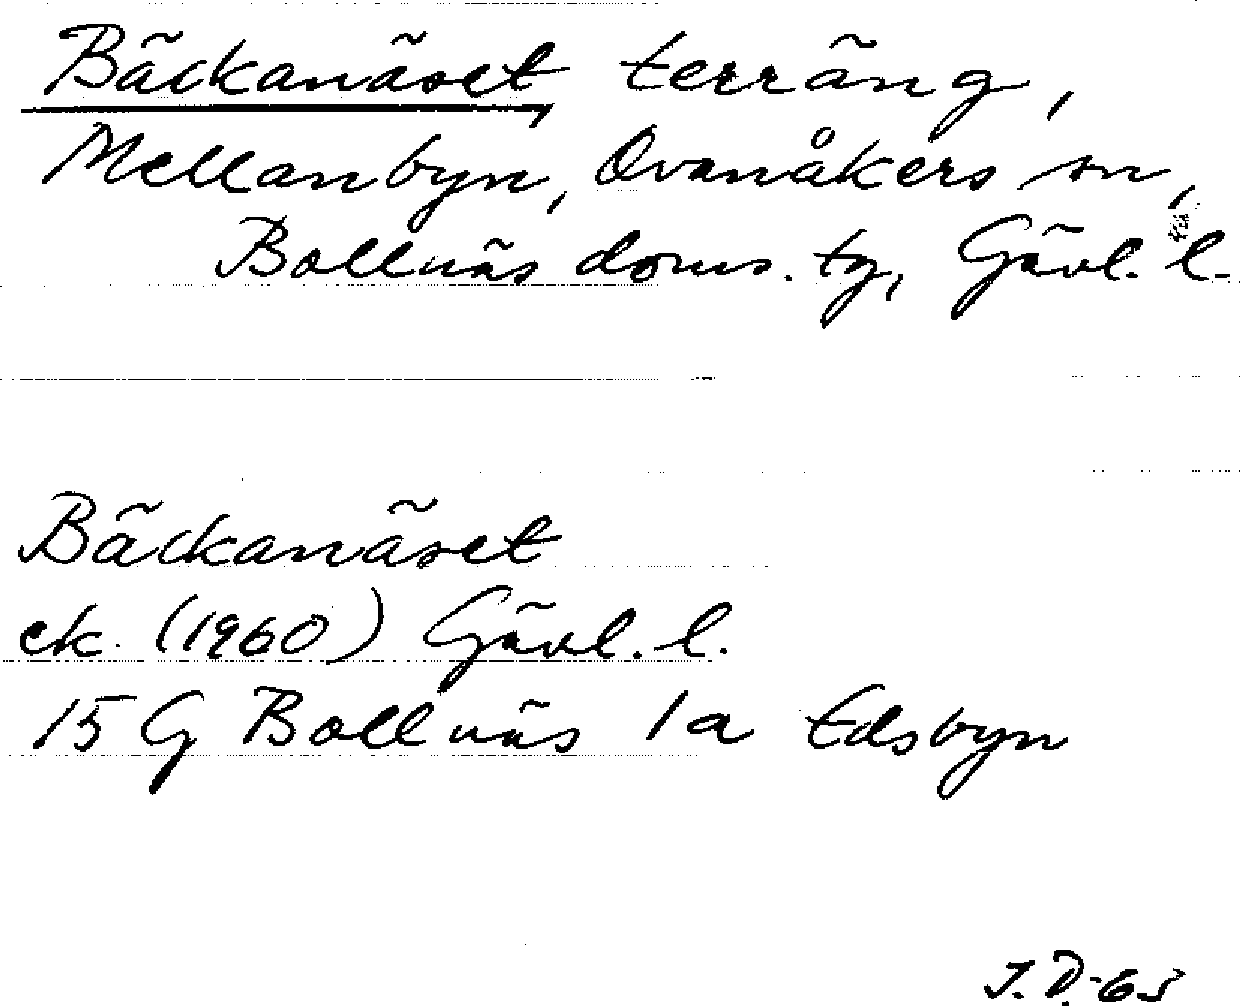 Bäckanäset terräng,
Mellanbyn, Ovanåkers sn,
Bollnäs doms. tg, Gävl. l.
Bäckanäset
ek. (1960) Gävl. l.
15 G Bollnäs 1a Edsbyn
J.D.-65